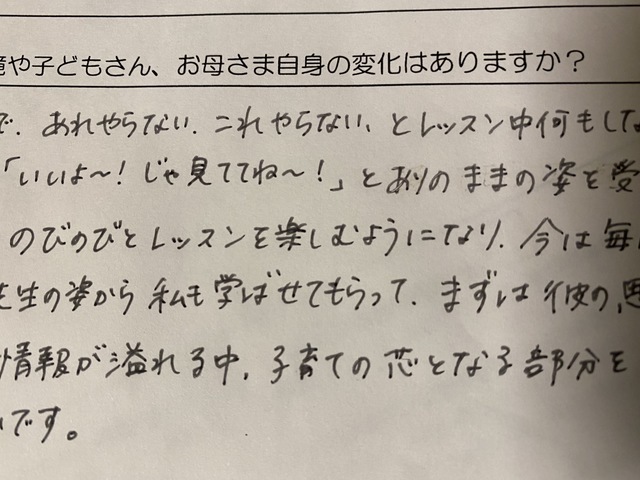 境や子どもさん、お母さま自身の変化はありますか？
で、あれやらない、これやらない、とレッスン中何もしな
「いいよ～！じゃ見ててね～！」とありのままの姿を受
のびのびとレッスンを楽しむようになり、今は毎
先生の姿から私も学ばせてもらって、まずは彼の、思
情報が溢れる中、子育ての芯となる部分を
いです。